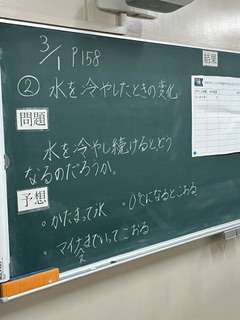 3/1 P158
結果
② 水を冷やしたときの変化
問題
水を冷やし続けると、どう
なるのだろうか。
予想
・かたまって氷 ・0℃になるとこおる
・マイナスまでいってこおる